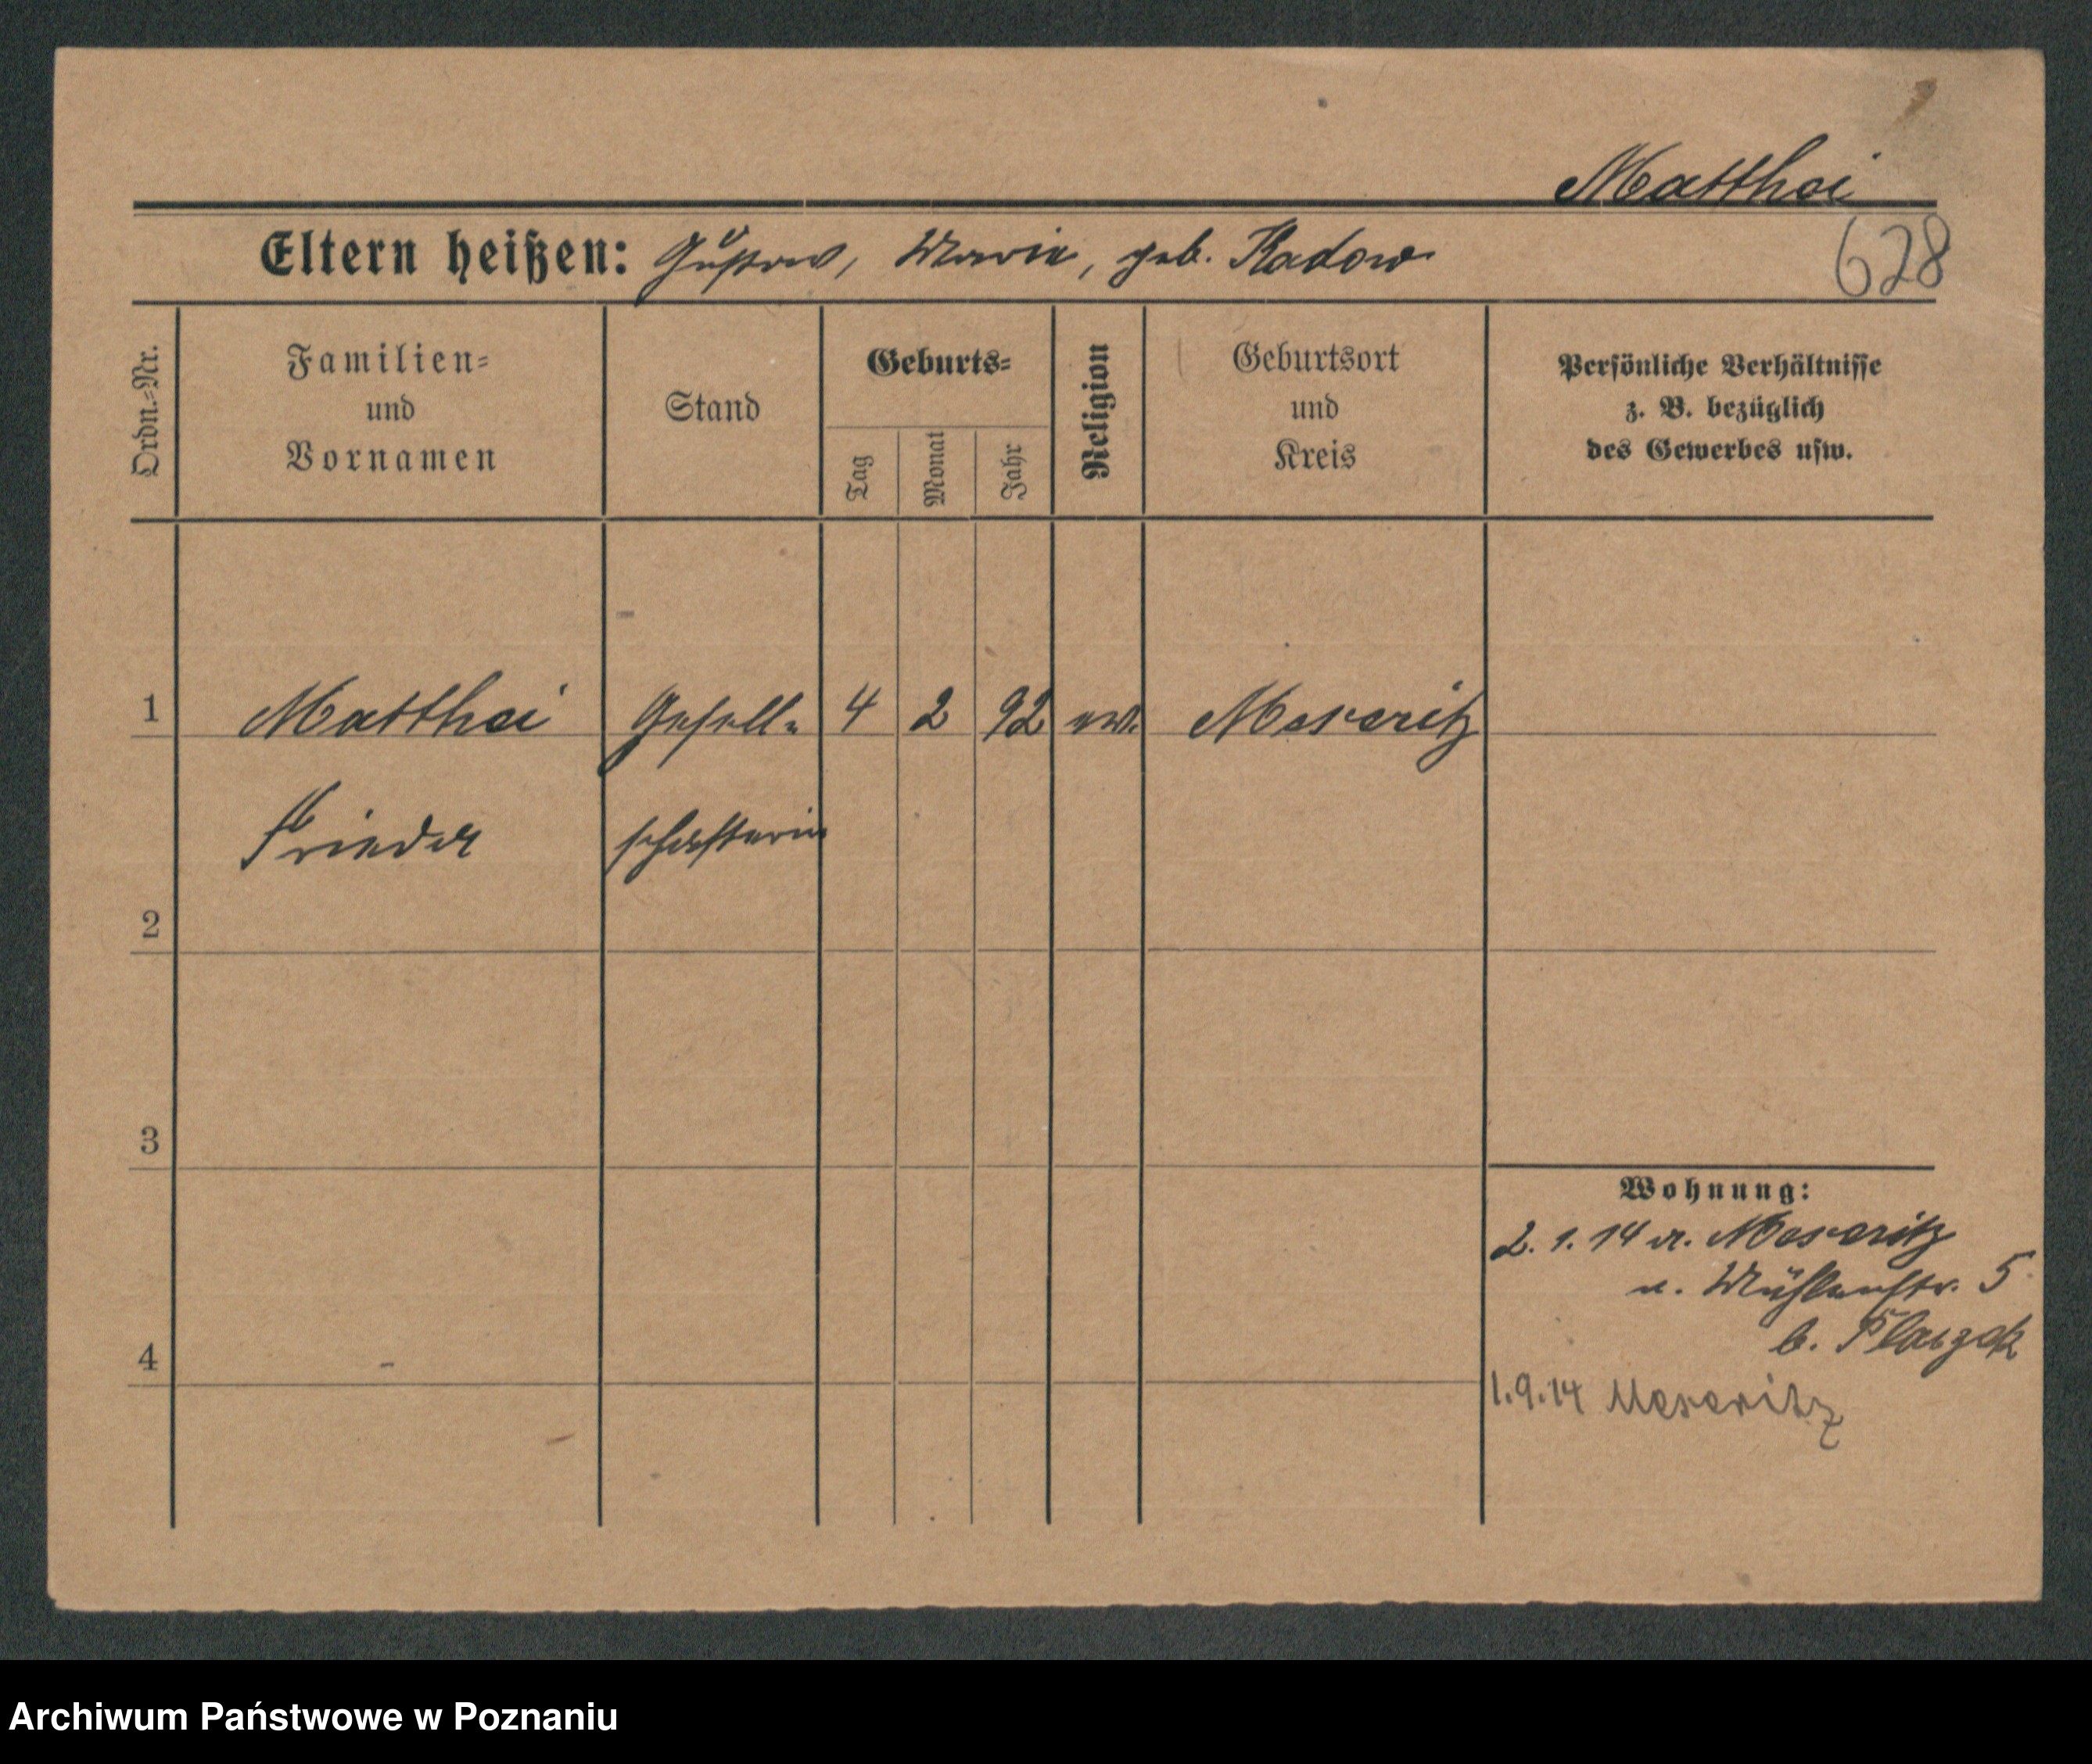 Matthai
Eltern heißen: Gustav, Marie, geb. Radow
628
Ordn.=Nr.
Familien=
und
Vornamen
Stand
Geburts=
Tag
Monat
Jahr
Religion
Geburtsort
und
Kreis
Persönliche Verhältnisse
z. B. bezüglich
des Gewerbes usw.
1 Matthai Gesell= 4 2 92 ev. Meseritz
schafterin
2
3
4
Wohnung:
2. 1. 14 v. Meseritz
n. Mühlenstr. 5
b.
1.9.14 Meseritz
Archiwum Państwowe w Poznaniu